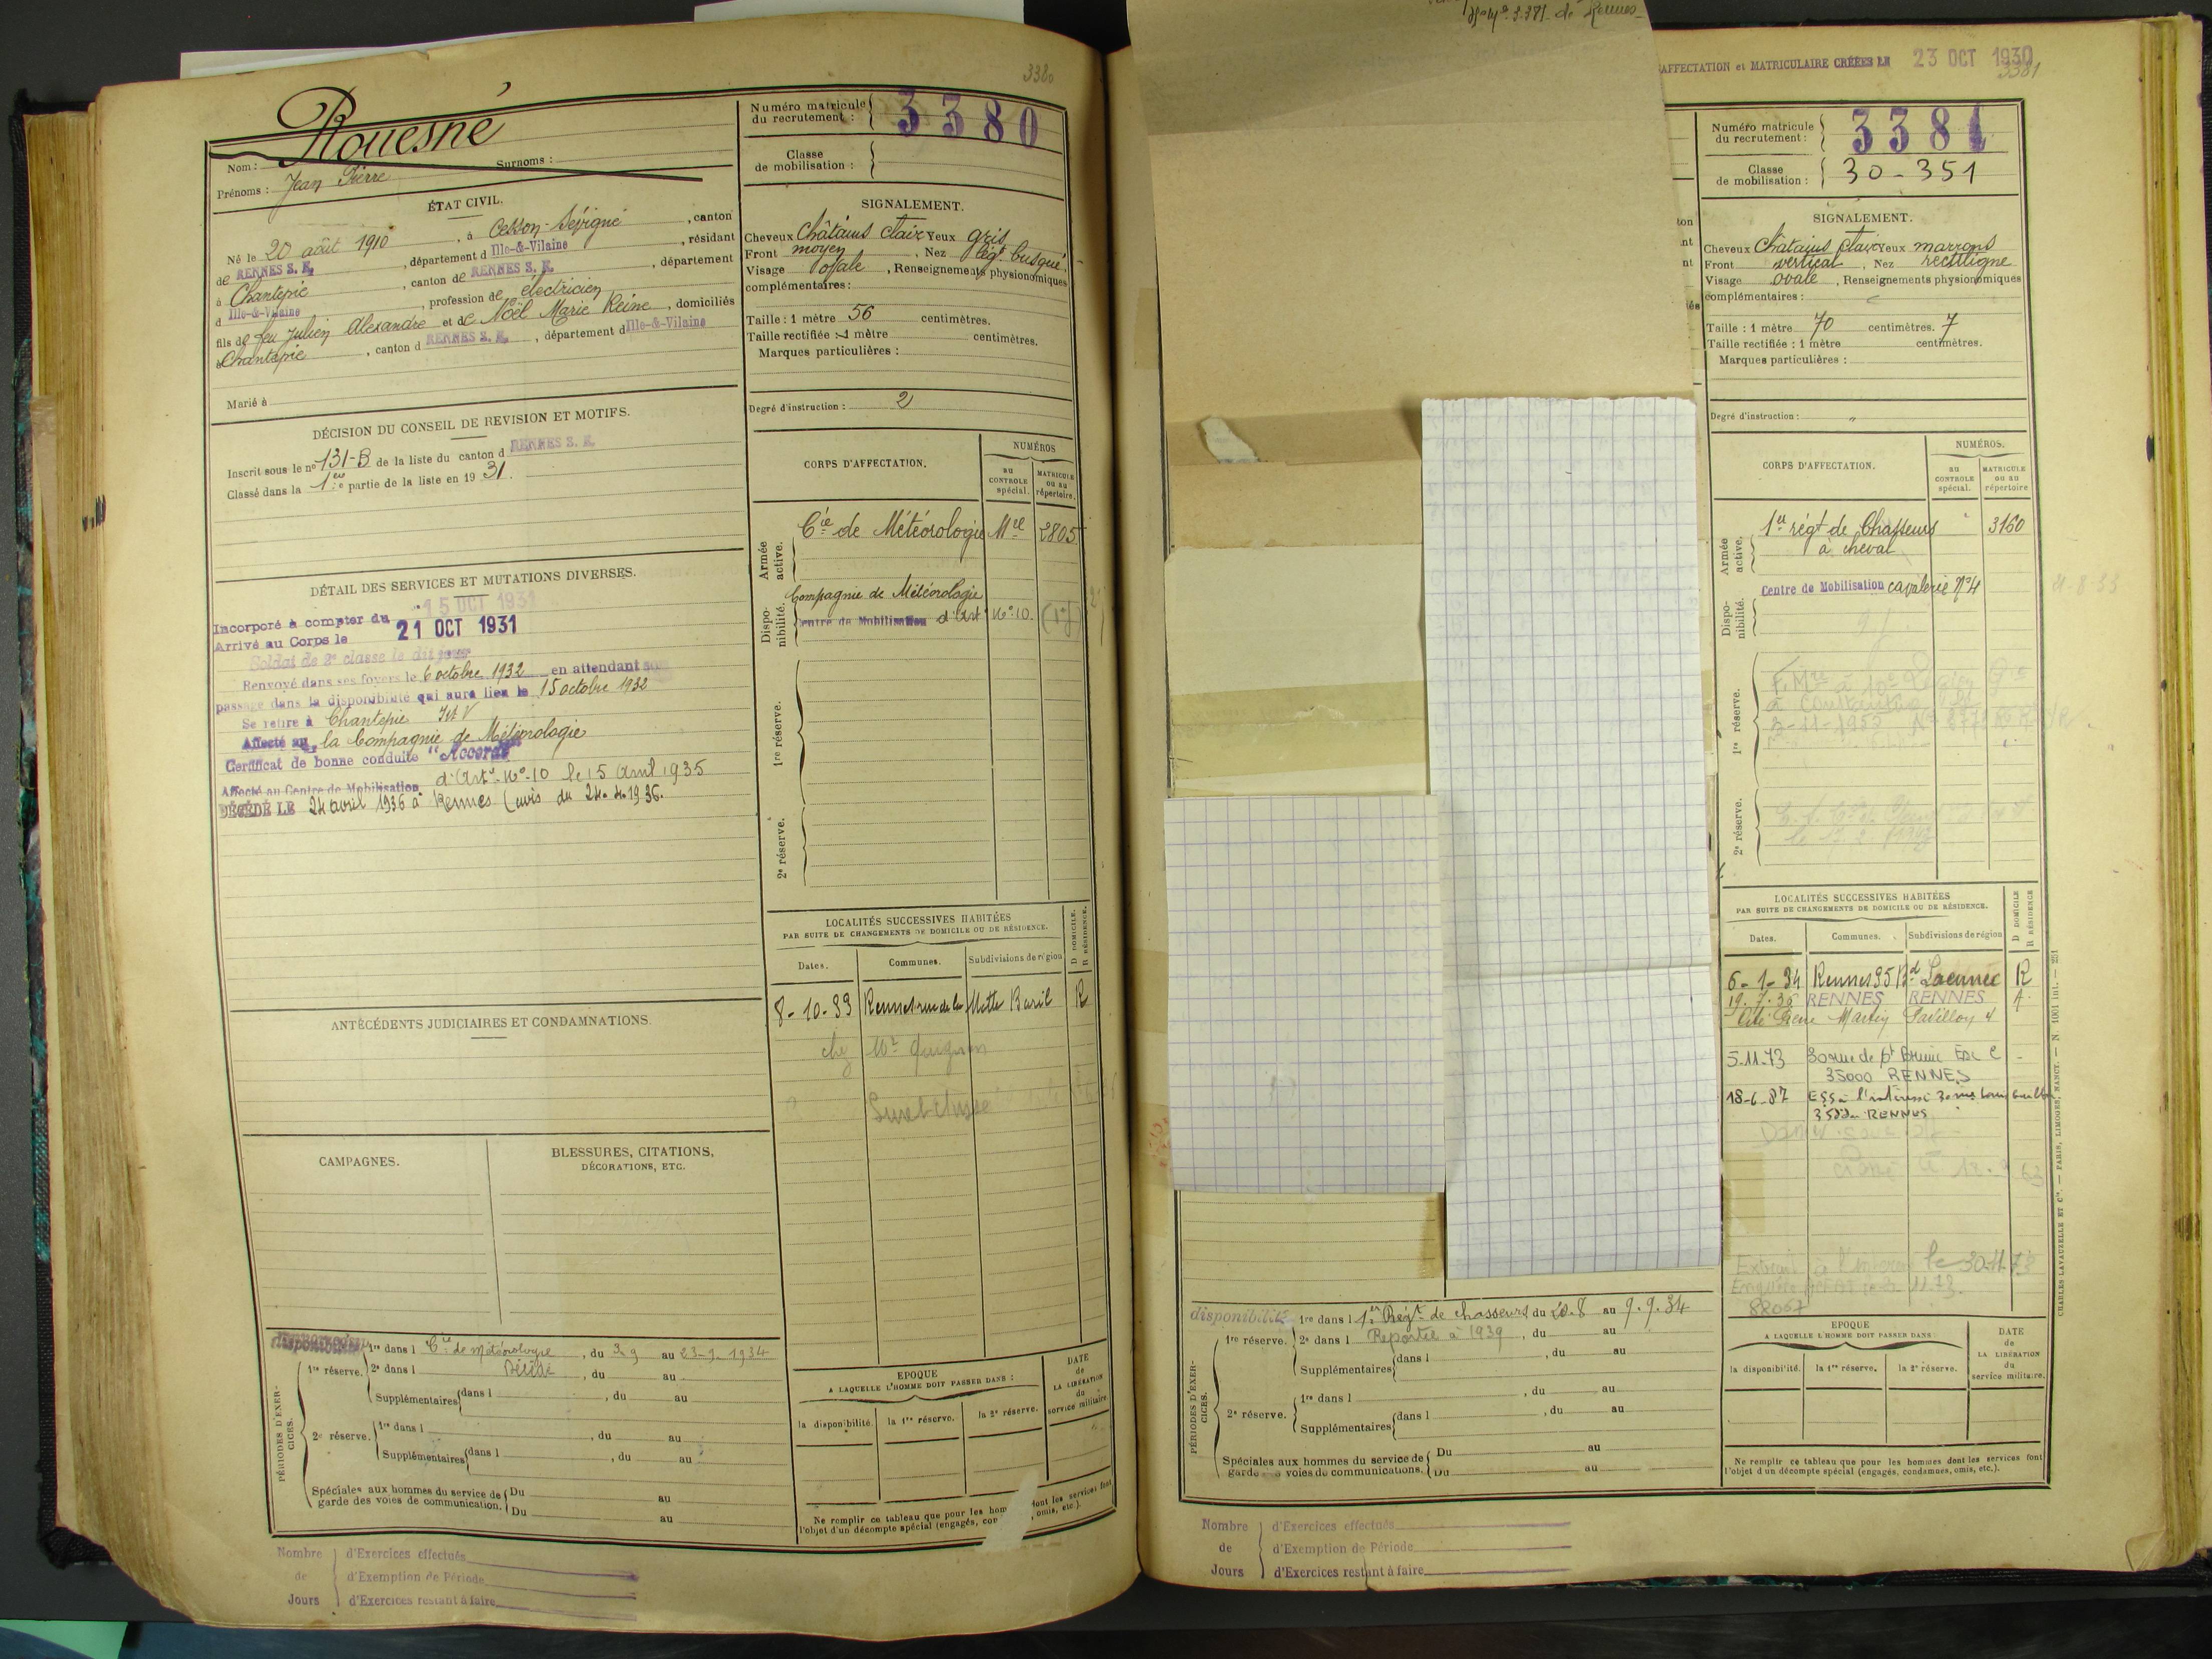 3380
Rouesné
Nom :
Surnoms :
Prénoms : Jean Pierre
ÉTAT CIVIL.
Né le 20 août 1910, à Cesson-Sévigné, canton
de RENNES S. E., département d Ille-&-Vilaine, résidant
à Chantepie, canton de RENNES S. E., département
d Ille-&-Vilaine, profession de électricien
fils de feu Julien Alexandre et de Noël Marie Reine, domiciliés
à Chantepie, canton d RENNES S. E., département d Ille-&-Vilaine
Marié à
DÉCISION DU CONSEIL DE REVISION ET MOTIFS.
Inscrit sous le no 131-B de la liste du canton d RENNES S. E.
Classé dans la 1re partie de la liste en 19 31.
DÉTAIL DES SERVICES ET MUTATIONS DIVERSES.
Incorporé à compter du 15 OCT 1931
Arrivé au Corps le 21 OCT 1931
Soldat de 2e classe le dit jour
Renvoyé dans ses foyers le 6 octobre 1932 en attendant son
passage dans la disponibilité qui aura lieu le 15 octobre 1932
Se retire à Chantepie I et V
Affecté au la Compagnie de Météorologie
Certificat de bonne conduite "Accordé"
Affecté au Centre de Mobilisation d'Art. No 10 le 15 Avril 1935
DÉCÉDÉ LE 24 avril 1936 à Rennes (avis du 24.4.1936.
ANTÉCÉDENTS JUDICIAIRES ET CONDAMNATIONS.
CAMPAGNES.
BLESSURES, CITATIONS,
DÉCORATIONS, ETC.
PÉRIODES D'EXERCICES.
disponibilité
1re réserve.
1re dans l Cie de météorologie, du 3-9 au 23-9-1934
2e dans l Décédé, du au
Supplémentaires dans l , du au
2e réserve.
1re dans l , du au
Supplémentaires dans l , du au
Spéciales aux hommes du service de
garde des voies de communication.
Du au
Du au
Nombre
de
Jours
d'Exercices effectués
d'Exemption de Période
d'Exercices restant à faire
Numéro matricule
du recrutement : 3380
Classe
de mobilisation :
SIGNALEMENT.
Cheveux Châtains clair Yeux gris
Front moyen, Nez légt busqué
Visage ovale, Renseignements physionomiques
complémentaires :
Taille : 1 mètre 56 centimètres.
Taille rectifiée : 1 mètre centimètres.
Marques particulières :
Degré d'instruction : 2
CORPS D'AFFECTATION.
NUMÉROS
au
CONTROLE
spécial.
MATRICULE
ou au
répertoire.
Armée
active.
Cie de Météorologie Mle 2805
Disponibilité.
Compagnie de Météorologie
Centre de Mobilisation d'Art No 10
1re réserve.
2e réserve.
LOCALITÉS SUCCESSIVES HABITÉES
PAR SUITE DE CHANGEMENTS DE DOMICILE OU DE RÉSIDENCE.
D DOMICILE.
R RÉSIDENCE.
Dates.
Communes.
Subdivisions de région
8-10-33 Rennes rue de la Motte Baril R
EPOQUE
A LAQUELLE L'HOMME DOIT PASSER DANS :
DATE
de
LA LIBÉRATION
du
service militaire.
la disponibilité.
la 1re réserve.
la 2e réserve.
Ne remplir ce tableau que pour les hom dont les services font
l'objet d'un décompte spécial (engagés, con , omis, etc.).
No 3.371 de Rennes
AFFECTATION et MATRICULAIRE CRÉÉES LE 23 OCT 1930
3381
Numéro matricule
du recrutement : 3381
Classe
de mobilisation : 30-351
SIGNALEMENT.
Cheveux Châtains clair Yeux marrons
Front vertical, Nez rectiligne
Visage ovale, Renseignements physionomiques
complémentaires :
Taille : 1 mètre 70 centimètres. 7
Taille rectifiée : 1 mètre centimètres.
Marques particulières :
Degré d'instruction : "
CORPS D'AFFECTATION.
NUMÉROS.
au
CONTROLE
spécial.
MATRICULE
ou au
répertoire
Armée
active.
1er régt de Chasseurs 3160
à cheval
Disponibilité.
Centre de Mobilisation cavalerie No 4
1re réserve.
2e réserve.
LOCALITÉS SUCCESSIVES HABITÉES
PAR SUITE DE CHANGEMENTS DE DOMICILE OU DE RÉSIDENCE.
D DOMICILE
R RÉSIDENCE
Dates.
Communes.
Subdivisions de région
6-1-34 Rennes 95 Bd Laennec R
RENNES RENNES
Pavillon 4
5-11-73
35000 RENNES
18-6-87
RENNES
le 30-11-73
82067
disponibilité
PÉRIODES D'EXERCICES.
1re réserve.
1re dans l 1er Régt de chasseurs du 20.8 au 9.9.34
2e dans l Reportée à 1939, du au
Supplémentaires dans l , du au
2e réserve.
1re dans l , du au
Supplémentaires dans l , du au
Spéciales aux hommes du service de
garde voies de communications.
Du au
Du au
EPOQUE
A LAQUELLE L'HOMME DOIT PASSER DANS :
DATE
de
LA LIBÉRATION
du
service militaire.
la disponibilité.
la 1re réserve.
la 2e réserve.
Ne remplir ce tableau que pour les hommes dont les services font
l'objet d'un décompte spécial (engagés, condamnés, omis, etc.).
Nombre
de
Jours
d'Exercices effectués
d'Exemption de Période
d'Exercices restant à faire
CHARLES-LAVAUZELLE ET Cie. — PARIS, LIMOGES, NANCY. — N° 1001 int. — 931